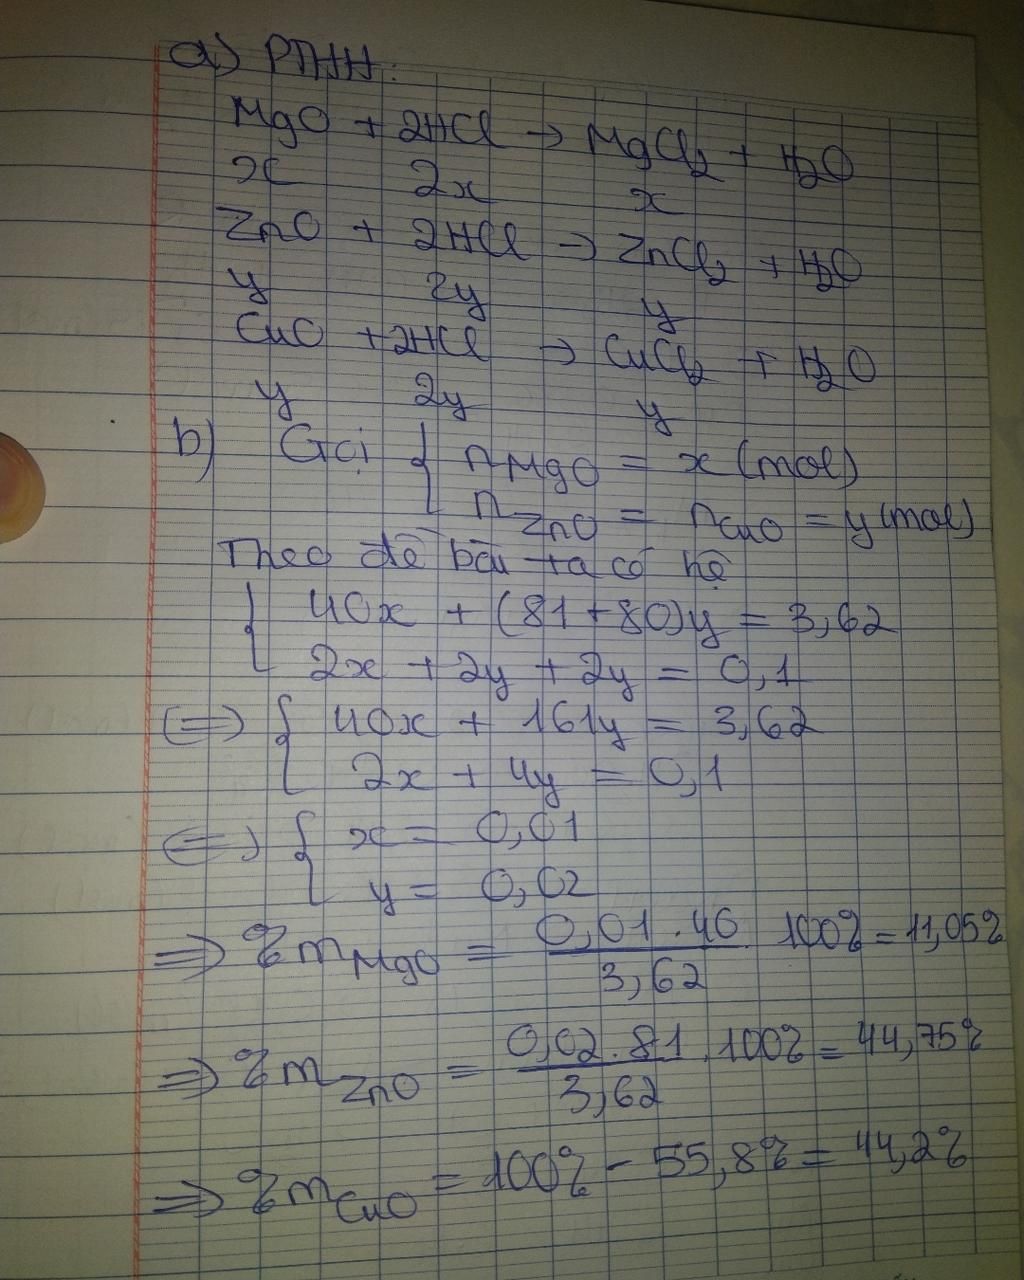 a) PTHH:
MgO + 2HCl → MgCl₂ + H₂O
x 2x x
ZnO + 2HCl → ZnCl₂ + H₂O
y 2y y
CuO + 2HCl → CuCl₂ + H₂O
y 2y y
b) Gọi { n MgO = x (mol)
n ZnO = n CuO = y (mol)
Theo đề bài ta có hệ
{ 40x + (81+80)y = 3,62
2x + 2y + 2y = 0,1
(=) { 40x + 161y = 3,62
2x + 4y = 0,1
(=) { x = 0,01
y = 0,02
=> % m MgO = 0,01 . 40 / 3,62 100% = 11,05%
=> % m ZnO = 0,02 . 81 / 3,62 . 100% = 44,75%
=> % m CuO = 100% - 55,8% = 44,2%